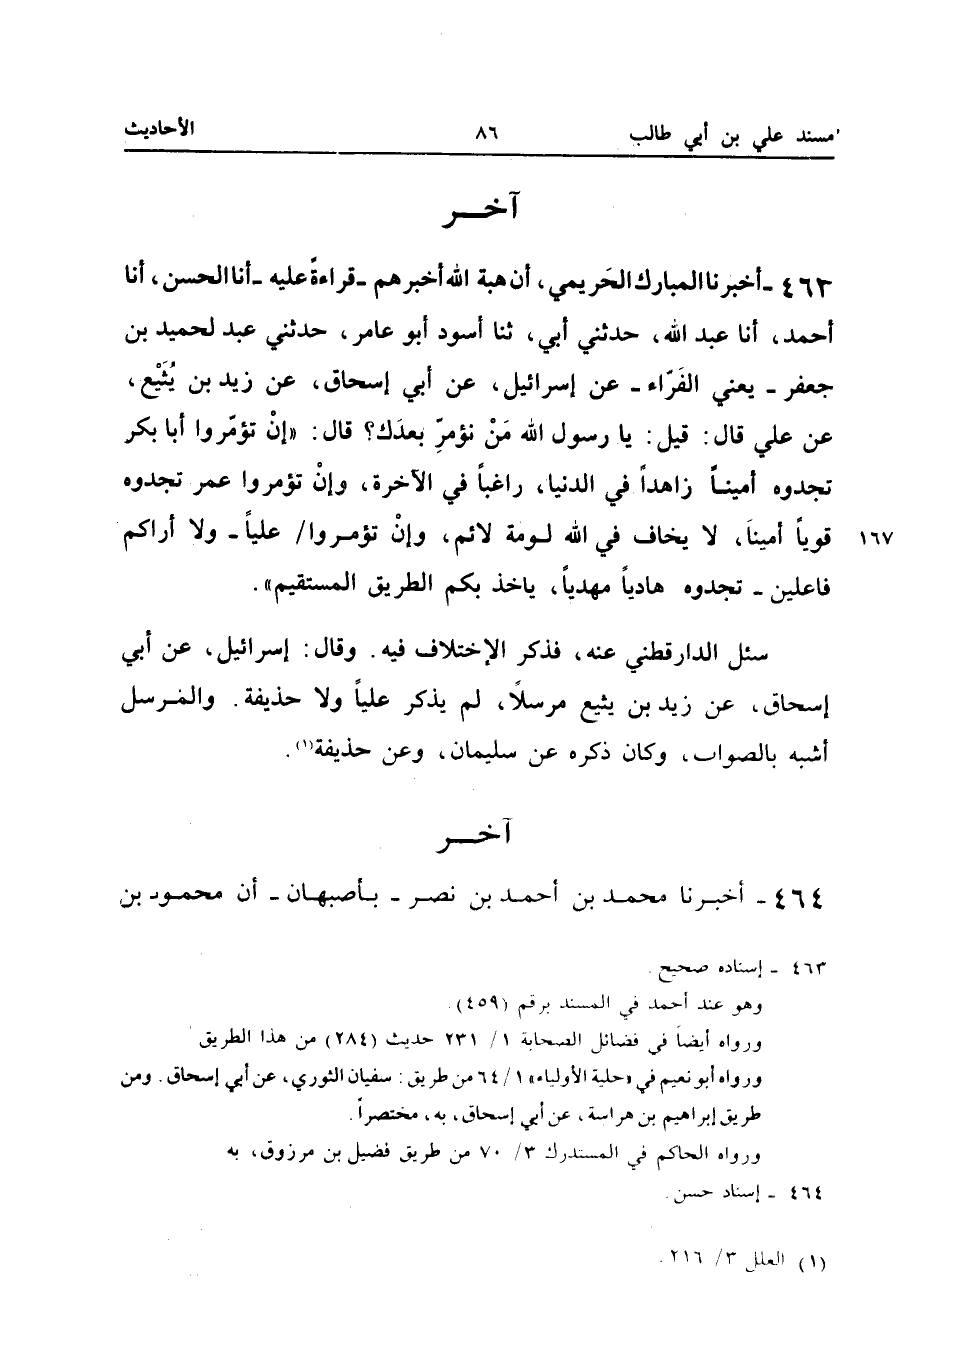 مسند علي بن أبي طالب ٨٦ الأحاديث
آخـــر
٤٦٣ - أخبرنا المبارك الحَريمي، أن هبة الله أخبرهم - قراءةً عليه - أنا الحسن، أنا
أحمد، أنا عبد الله، حدثني أبي، ثنا أسود أبو عامر، حدثني عبد لحميد بن
جعفر - يعني الفَرّاء - عن إسرائيل، عن أبي إسحاق، عن زيد بن يُثَيْع،
عن علي قال: قيل: يا رسول الله مَنْ نؤمرِّ بعدَك؟ قال: «إنْ تؤمّروا أبا بكر
تجدوه أمينـاً زاهداً في الدنيا، راغباً في الآخرة، وإنْ تؤمروا عمر تجدوه
قوياً أميناً، لا يخاف في الله لـومة لائم، وإنْ تؤمـروا/ علياً - ولا أراكم ١٦٧
فاعلين - تجدوه هادياً مهدياً، ياخذ بكم الطريق المستقيم».
سئل الدارقطني عنه، فذكر الإختلاف فيه. وقال: إسرائيل، عن أبي
إسحاق، عن زيد بن يثيع مرسلًا، لم يذكر علياً ولا حذيفة. والمُـرسل
أشبه بالصواب، وكان ذكره عن سليمان، وعن حذيفة(١).
آخـــر
٤٦٤ - أخبـرنا محمـد بن أحمـد بن نصـر - بـأصبهان - أن محمـود بن
٤٦٣ - إسناده صحيح.
وهو عند أحمد في المسند برقم (٤٥٩).
ورواه أيضاً في فضائل الصحابة ١/ ٢٣١ حديث (٢٨٤) من هذا الطريق
ورواه أبو نعيم في «حلية الأولياء» ١/ ٦٤ من طريق: سفيان الثوري، عن أبي إسحاق. ومن
طريق إبراهيم بن هراسة، عن أبي إسحاق، به، مختصراً.
ورواه الحاكم في المستدرك ٣/ ٧٠ من طريق فضيل بن مرزوق، به
٤٦٤ - إسناد حسن.
(١) العلل ٣/ ٢١٦.